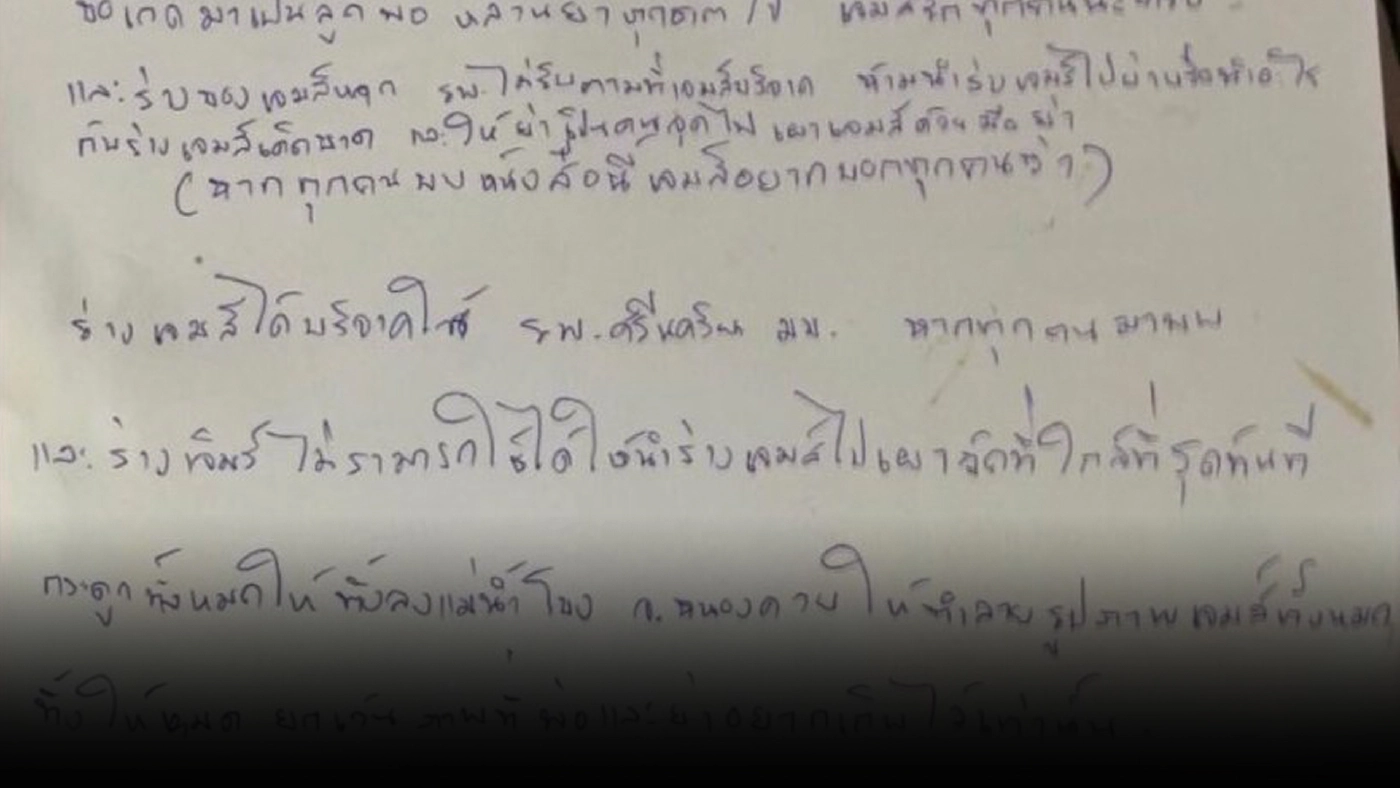 ขอเกิดมาเป็นลูกพ่อ หลานย่าทุกชาติไป เจมส์รักทุกคนนะครับ
และร่างของเจมส์หาก รพ.ไม่รับตามที่เจมส์บริจาค ห้ามนำร่างเจมส์ไปผ่าหรือทำอะไร
กับร่างเจมส์เด็ดขาด และให้ย่าเป็นคนจุดไฟเผาเจมส์ด้วยมือย่า
(หากทุกคนพบหนังสือนี้เจมส์อยากบอกทุกคนว่า)
ร่างเจมส์ได้บริจาคให้ รพ.ศรีนครินทร์ มข. หากทุกคนมาพบ
และร่างเจมส์ไม่สามารถใช้ได้ให้นำร่างเจมส์ไปเผาวัดที่ใกล้ที่สุดทันที
กระดูกทั้งหมดให้ทิ้งลงแม่น้ำโขง จ.หนองคาย ให้ทำลายรูปภาพเจมส์ทั้งหมด
ทิ้งให้หมด ยกเว้นภาพที่พ่อและย่าอยากเก็บไว้เท่านั้น